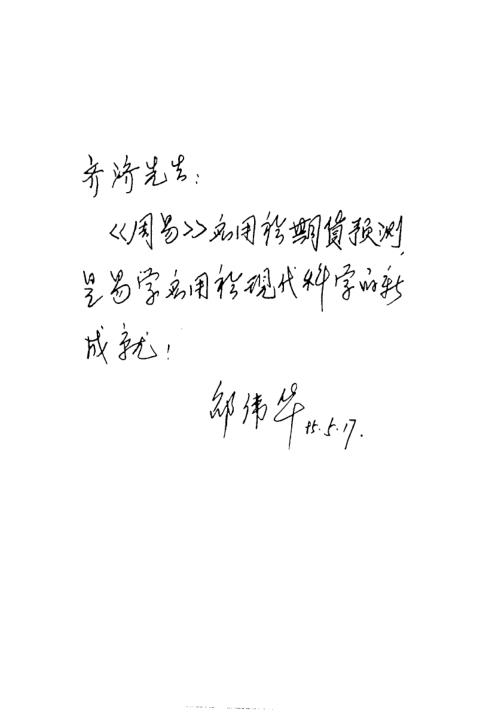 齐济先生：
《周易》应用于期货预测，
是易学应用于现代科学的新
成就！
邵伟华 95.5.17.